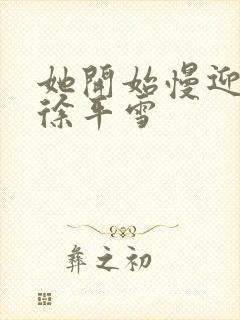 她開始慢迎
徐平雪
彝之初